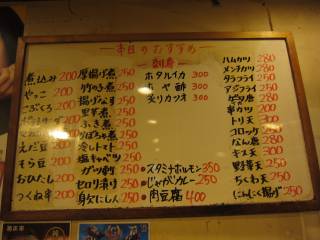 本日のおすすめ
煮込み 200
やっこ 200
200
200
えだ豆 200
もう豆 200
おひたし 200
つくね串 200
厚揚げ煮 250
竹の子煮 250
揚げなす 250
里芋煮 250
ふき煮 250
かぼちゃ煮 250
冷しトマト 250
塩キャベツ 250
ガツ刺 250
セロリ漬け 250
身欠にしん 250
刺身
ホタルイカ 300
ホヤ酢 300
炙りカツオ 300
スタミナホルモン 350
じゃがカレー 250
肉豆腐 400
ハムカツ 250
メンチカツ 250
タラフライ 250
アジフライ 250
ゲソ唐 280
串カツ 200
トリ天 300
コロッケ 250
なん唐 280
キス天 300
野菜天 250
ちくわ天 250
にんにく揚げ 250